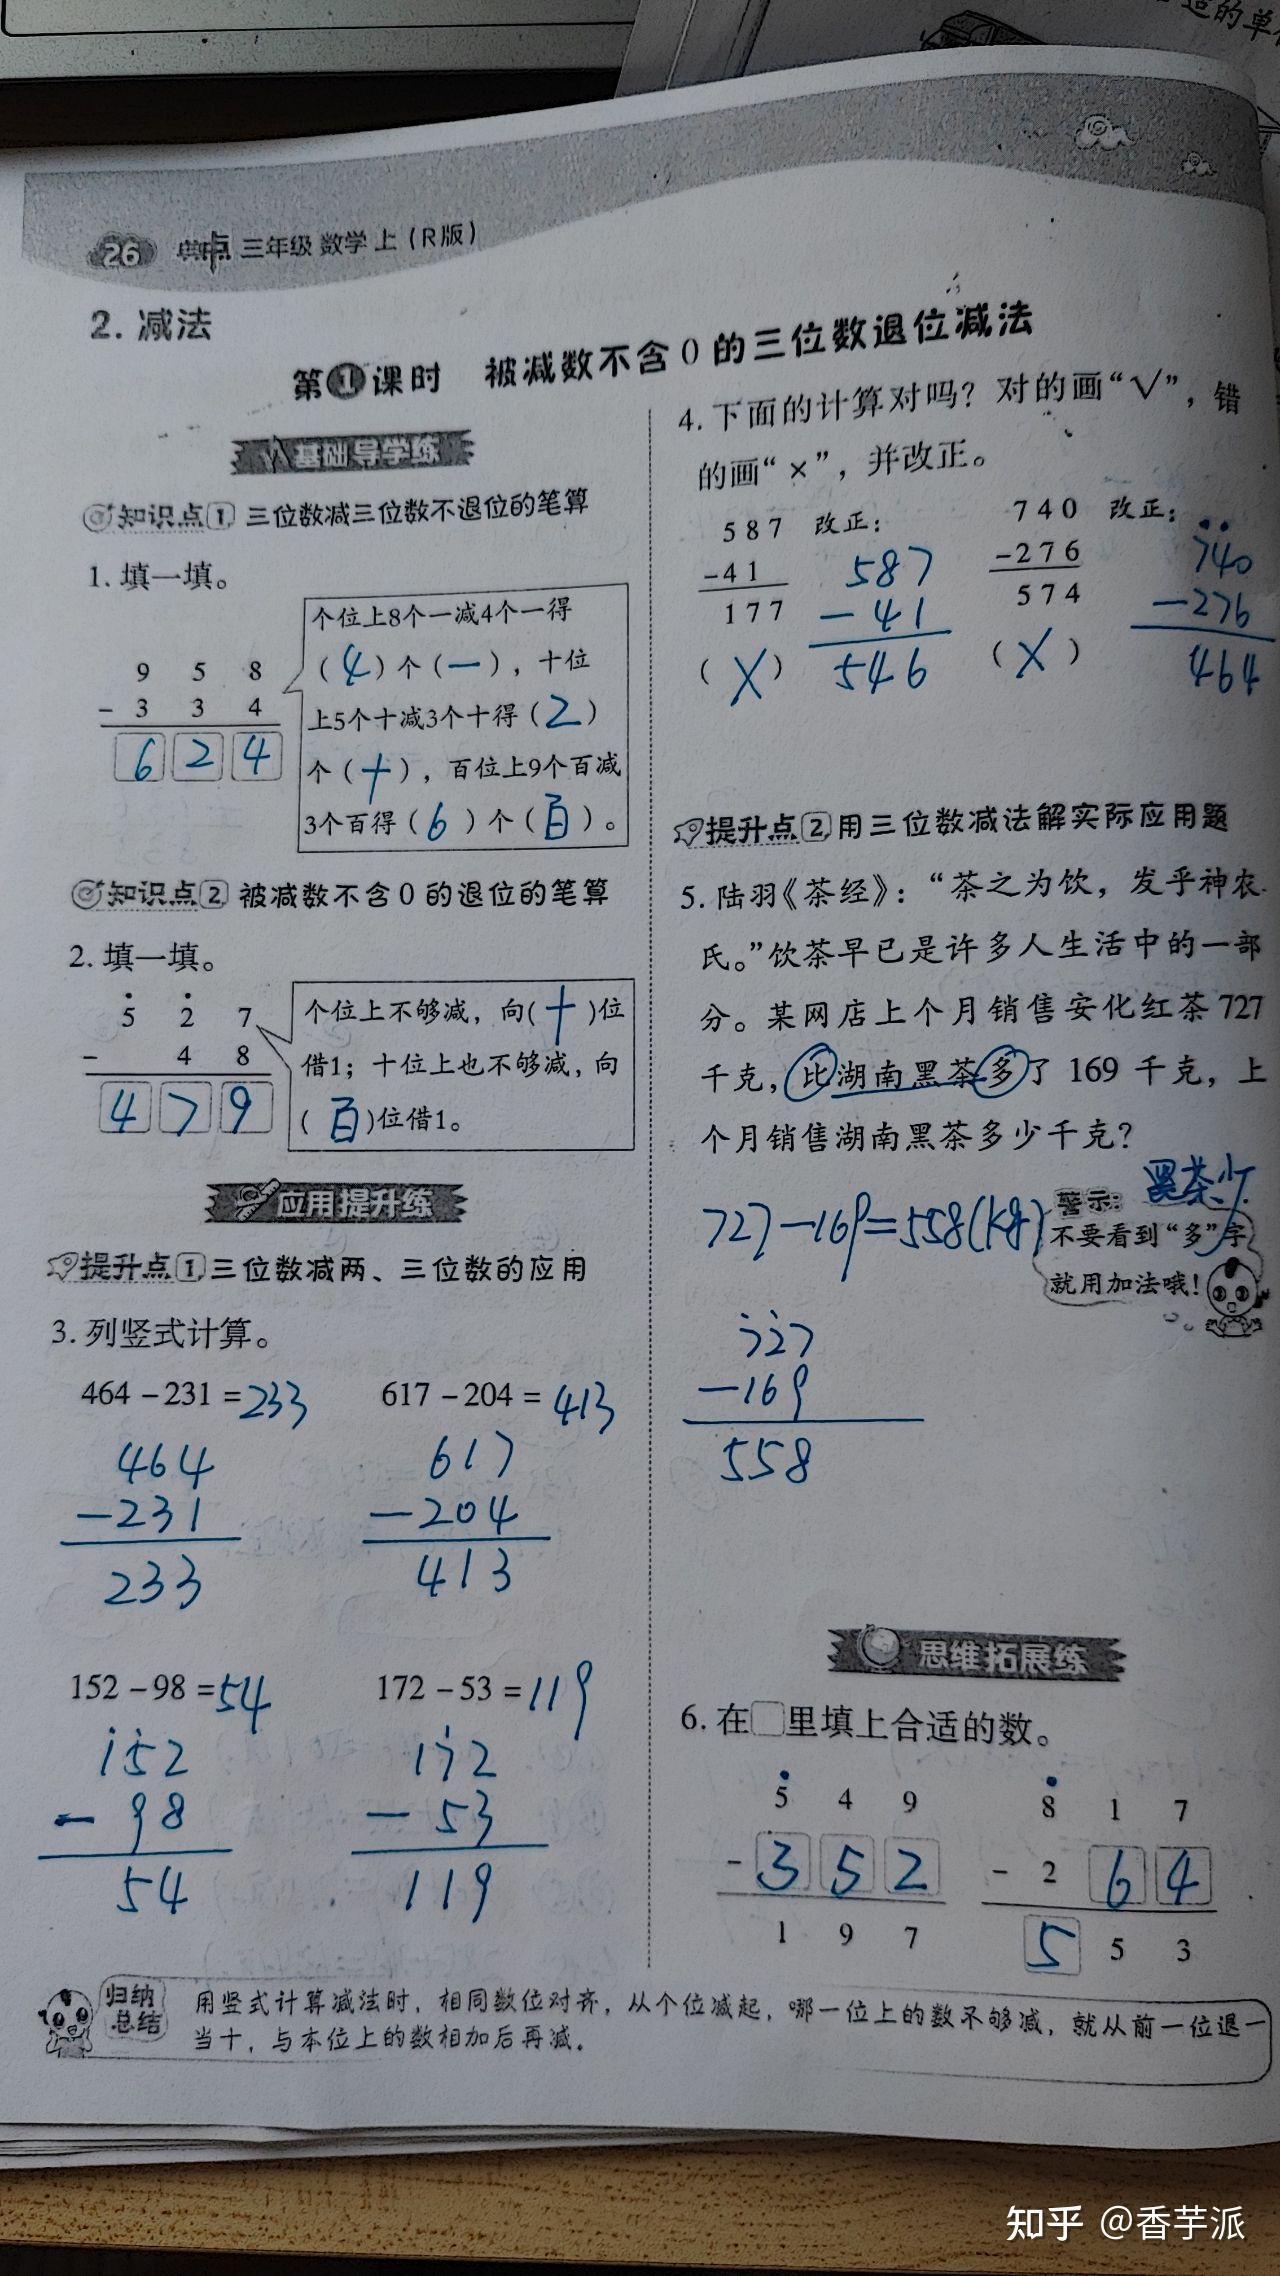 造的单
26 典中点 三年级 数学 上（R版）
2. 减法
第1课时 被减数不含0的三位数退位减法
基础导学练
知识点1 三位数减三位数不退位的笔算
1. 填一填。
9 5 8
- 3 3 4
6 2 4
个位上8个一减4个一得
（4）个（一），十位
上5个十减3个十得（2）
个（十），百位上9个百减
3个百得（6）个（百）。
知识点2 被减数不含0的退位的笔算
2. 填一填。
5 2 7
- 4 8
4 7 9
个位上不够减，向(十)位
借1；十位上也不够减，向
(百)位借1。
应用提升练
提升点1 三位数减两、三位数的应用
3. 列竖式计算。
464－231＝233 617－204＝413
464
－231
233
617
－204
413
152－98＝54 172－53＝119
152
－98
54
172
－53
119
4. 下面的计算对吗？对的画“√”，错
的画“×”，并改正。
587 改正：
-41
177
（X）
587
－41
546
740 改正：
-276
574
（X）
740
－276
464
提升点2 用三位数减法解实际应用题
5. 陆羽《茶经》：“茶之为饮，发乎神农
氏。”饮茶早已是许多人生活中的一部
分。某网店上个月销售安化红茶727
千克，比湖南黑茶多了169千克，上
个月销售湖南黑茶多少千克？
黑茶少
727－169＝558(kg)
警示：
不要看到“多”字
就用加法哦！
727
－169
558
思维拓展练
6. 在□里填上合适的数。
5 4 9
- 3 5 2
1 9 7
8 1 7
- 2 6 4
5 5 3
归纳
总结
用竖式计算减法时，相同数位对齐，从个位减起，哪一位上的数不够减，就从前一位退一
当十，与本位上的数相加后再减。
知乎 @香芋派